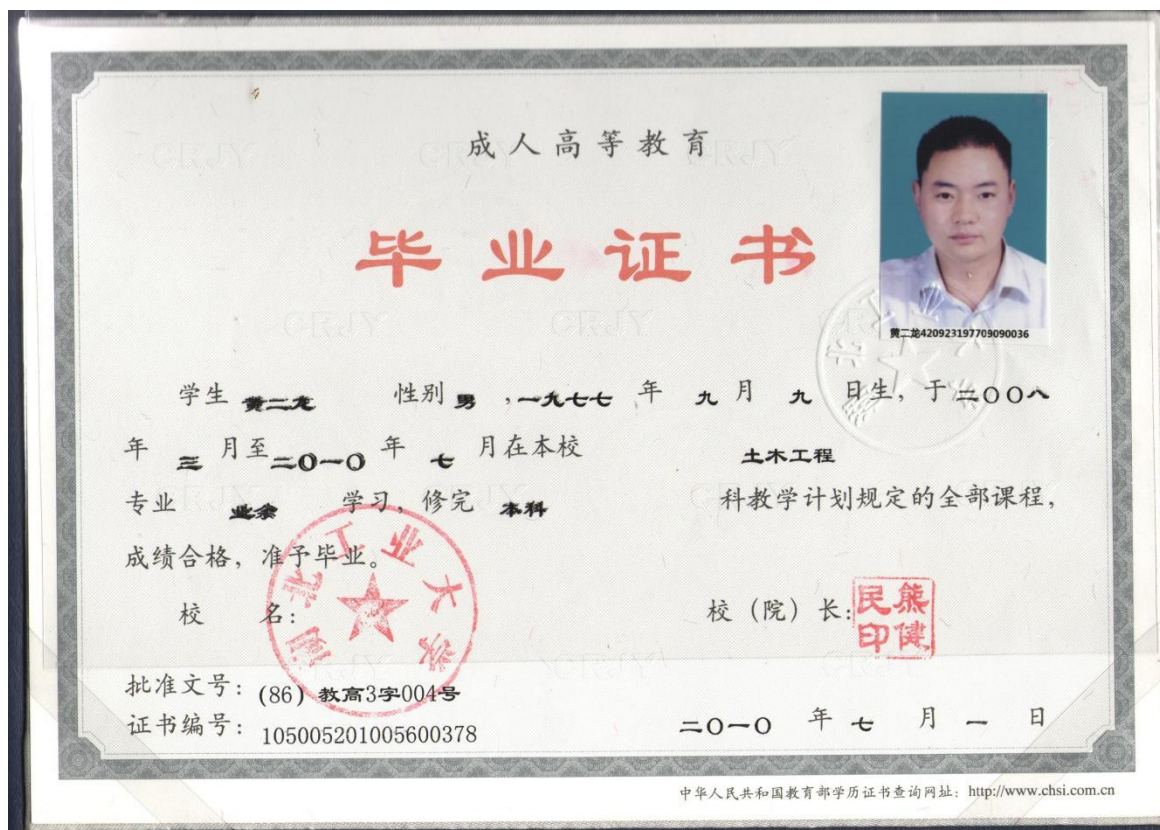 成人高等教育
毕业证书
黄二龙420923197709090036
学生 黄二龙 性别 男 ,一九七七 年 九 月 九 日生, 于二〇〇八
年 三 月至二〇一〇 年 七 月在本校 土木工程
专业 业余 学习, 修完 本科 科教学计划规定的全部课程,
成绩合格, 准予毕业。
湖北工业大学
校 名: 校 (院) 长: 熊健民印
批准文号: (86) 教高3字004号
证书编号: 105005201005600378 二〇一〇 年 七 月 一 日
中华人民共和国教育部学历证书查询网址: http://www.chsi.com.cn
CRJY